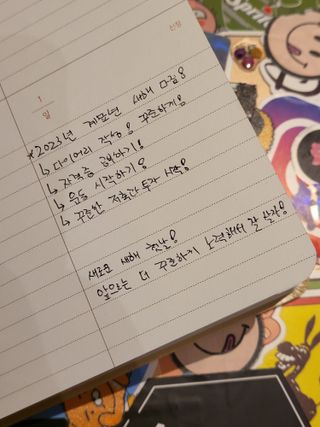 신정
1
일
*2023년 계묘년 새해 다짐!
↳ 다이어리 작성! 꾸준하게!
↳ 자격증 공부하기!
↳ 운동 시작하기!
↳ 꾸준한 저축과 투자 시작!
새로운 새해 첫날!
앞으로는 더 꾸준하게 노력해서 잘 살자!